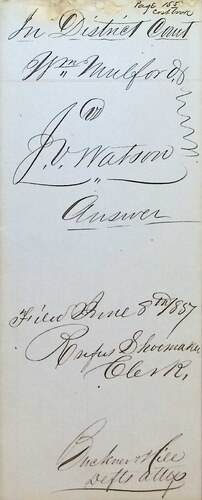 Page 155
Cost Book
In District Court
Wm Mulford
J. V. Watson
Answer
Filed June 8th 1857
Rufus Shoemaker
Clerk,
Buckner & Hill
Defts attys